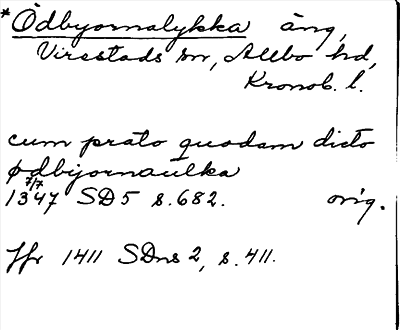 *Ödbjornalykka äng,
Virestads sn, Allbo hd,
Kronob. l.
cum prato quodam dicto
ødbijornaulka
7/7
1347 SD5 s.682. orig.
Jfr 1411 SDns 2, s.411.